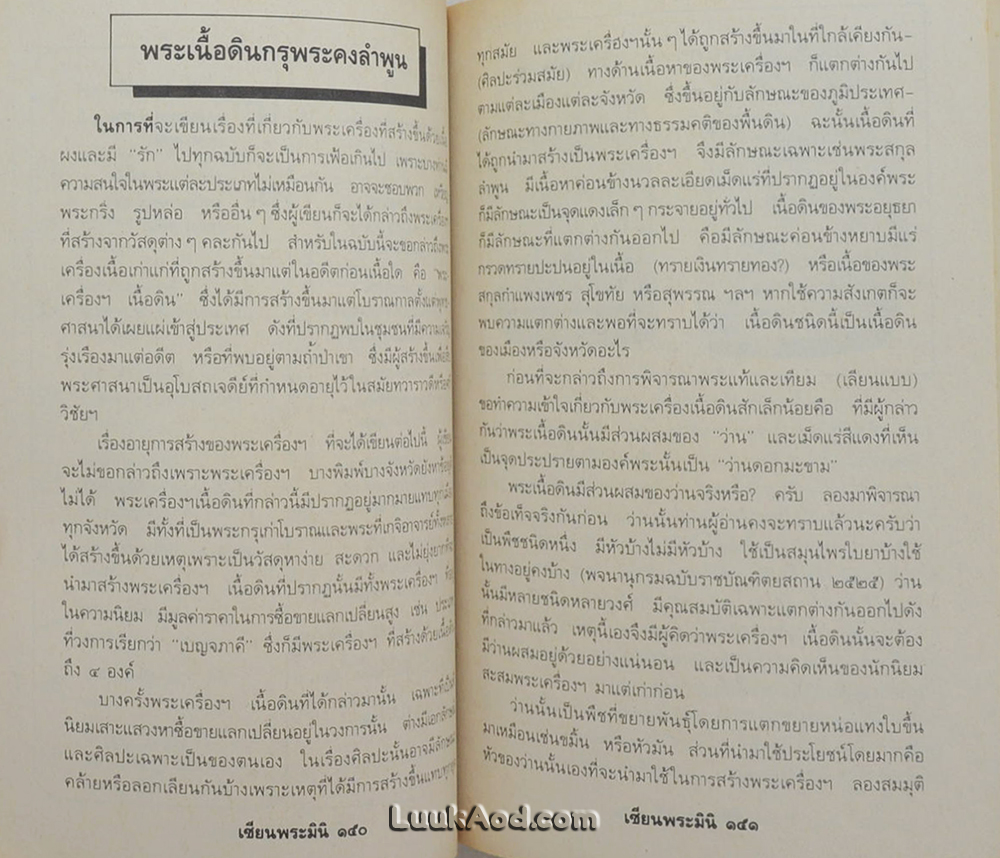 พระเนื้อดินกรุพระคงลำพูน
ในการที่จะเขียนเรื่องที่เกี่ยวกับพระเครื่องที่สร้างขึ้นด้วย
ผงและมี "รัก" ไปทุกฉบับก็จะเป็นการเฟ้อเกินไป เพราะบาง
ความสนใจในพระแต่ละประเภทไม่เหมือนกัน อาจจะชอบพวก
พระกริ่ง รูปหล่อ หรืออื่น ๆ ซึ่งผู้เขียนก็จะได้กล่าวถึงพระเครื่องฯ
ที่สร้างจากวัสดุต่าง ๆ คละกันไป สำหรับในฉบับนี้จะขอกล่าวถึง
เครื่องเนื้อเก่าแก่ที่ถูกสร้างขึ้นมาแต่ในอดีตก่อนเนื้อใด คือ "พระ-
เครื่องฯ เนื้อดิน" ซึ่งได้มีการสร้างขึ้นมาแต่โบราณกาลตั้งแต่พุทธ-
ศาสนาได้เผยแผ่เข้าสู่ประเทศ ดังที่ปรากฏพบในชุมชนที่มีความ
รุ่งเรืองมาแต่อดีต หรือที่พบอยู่ตามถ้ำป่าเขา ซึ่งมีผู้สร้างขึ้น
พระศาสนาเป็นอุโบสถเจดีย์ที่กำหนดอายุไว้ในสมัยทวาราวดี
วิชัยฯ
เรื่องอายุการสร้างของพระเครื่องฯ ที่จะได้เขียนต่อไปนี้
จะไม่ขอกล่าวถึงเพราะพระเครื่องฯ บางพิมพ์บางจังหวัดยัง
ไม่ได้ พระเครื่องฯเนื้อดินที่กล่าวนี้มีปรากฏอยู่มากมายแทบ
ทุกจังหวัด มีทั้งที่เป็นพระกรุเก่าโบราณและพระที่เกจิอาจารย์
ได้สร้างขึ้นด้วยเหตุเพราะเป็นวัสดุหาง่าย สะดวก และไม่ยุ่งยาก
นำมาสร้างพระเครื่องฯ เนื้อดินที่ปรากฏนั้นมีทั้งพระเครื่องฯ
ในความนิยม มีมูลค่าราคาในการซื้อขายแลกเปลี่ยนสูง เช่น
ที่วงการเรียกว่า "เบญจภาคี" ซึ่งก็มีพระเครื่องฯ ที่สร้างด้วยเนื้อดิน
ถึง ๔ องค์
บางครั้งพระเครื่องฯ เนื้อดินที่ได้กล่าวมานั้น เฉพาะที่
นิยมเสาะแสวงหาซื้อขายแลกเปลี่ยนอยู่ในวงการนั้น ต่างมี
และศิลปะเฉพาะเป็นของตนเอง ในเรื่องศิลปะนั้นอาจมี
คล้ายหรือลอกเลียนกันบ้างเพราะเหตุที่ได้มีการสร้างขึ้นแทบ
เซียนพระมินิ ๑๔๐
ทุกสมัย และพระเครื่องฯนั้น ๆ ได้ถูกสร้างขึ้นมาในที่ใกล้เคียงกัน-
(ศิลปะร่วมสมัย) ทางด้านเนื้อหาของพระเครื่องฯ ก็แตกต่างกันไป
ตามแต่ละเมืองแต่ละจังหวัด ซึ่งขึ้นอยู่กับลักษณะของภูมิประเทศ-
(ลักษณะทางกายภาพและทางธรรมคติของพื้นดิน) ฉะนั้นเนื้อดินที่
ได้ถูกนำมาสร้างเป็นพระเครื่องฯ จึงมีลักษณะเฉพาะเช่นพระสกุล
ลำพูน มีเนื้อหาค่อนข้างนวลละเอียดเม็ดแร่ที่ปรากฏอยู่ในองค์พระ
ก็มีลักษณะเป็นจุดแดงเล็ก ๆ กระจายอยู่ทั่วไป เนื้อดินของพระอยุธยา
ก็มีลักษณะที่แตกต่างกันออกไป คือมีลักษณะค่อนข้างหยาบมีแร่
กรวดทรายปะปนอยู่ในเนื้อ (ทรายเงินทรายทอง?) หรือเนื้อของพระ
สกุลกำแพงเพชร สุโขทัย หรือสุพรรณ ฯลฯ หากใช้ความสังเกตก็จะ
พบความแตกต่างและพอที่จะทราบได้ว่า เนื้อดินชนิดนี้เป็นเนื้อดิน
ของเมืองหรือจังหวัดอะไร
ก่อนที่จะกล่าวถึงการพิจารณาพระแท้และเทียม (เลียนแบบ)
ขอทำความเข้าใจเกี่ยวกับพระเครื่องเนื้อดินสักเล็กน้อยคือ ที่มีผู้กล่าว
กันว่าพระเนื้อดินนั้นมีส่วนผสมของ "ว่าน" และเม็ดแร่สีแดงที่เห็น
เป็นจุดประปรายตามองค์พระนั้นเป็น "ว่านดอกมะขาม"
พระเนื้อดินมีส่วนผสมของว่านจริงหรือ? ครับ ลองมาพิจารณา
ถึงข้อเท็จจริงกันก่อน ว่านนั้นท่านผู้อ่านคงจะทราบแล้วนะครับว่า
เป็นพืชชนิดหนึ่ง มีหัวบ้างไม่มีหัวบ้าง ใช้เป็นสมุนไพรใบยาบ้างใช้
ในทางอยู่คงบ้าง (พจนานุกรมฉบับราชบัณฑิตยสถาน ๒๕๒๕) ว่าน
นั้นมีหลายชนิดหลายวงศ์ มีคุณสมบัติเฉพาะแตกต่างกันออกไปดัง
ที่กล่าวมาแล้ว เหตุนี้เองจึงมีผู้คิดว่าพระเครื่องฯ เนื้อดินนั้นจะต้อง
มีว่านผสมอยู่ด้วยอย่างแน่นอน และเป็นความคิดเห็นของนักนิยม
สะสมพระเครื่องฯ มาแต่เก่าก่อน
ว่านนั้นเป็นพืชที่ขยายพันธุ์โดยการแตกขยายหน่อแทงใบขึ้น
มาเหมือนเช่นขมิ้น หรือหัวมัน ส่วนที่นำมาใช้ประโยชน์โดยมากคือ
หัวของว่านนั้นเองที่จะนำมาใช้ในการสร้างพระเครื่องฯ ลองสมมุติ
เซียนพระมินิ ๑๔๑
LuukAod.com